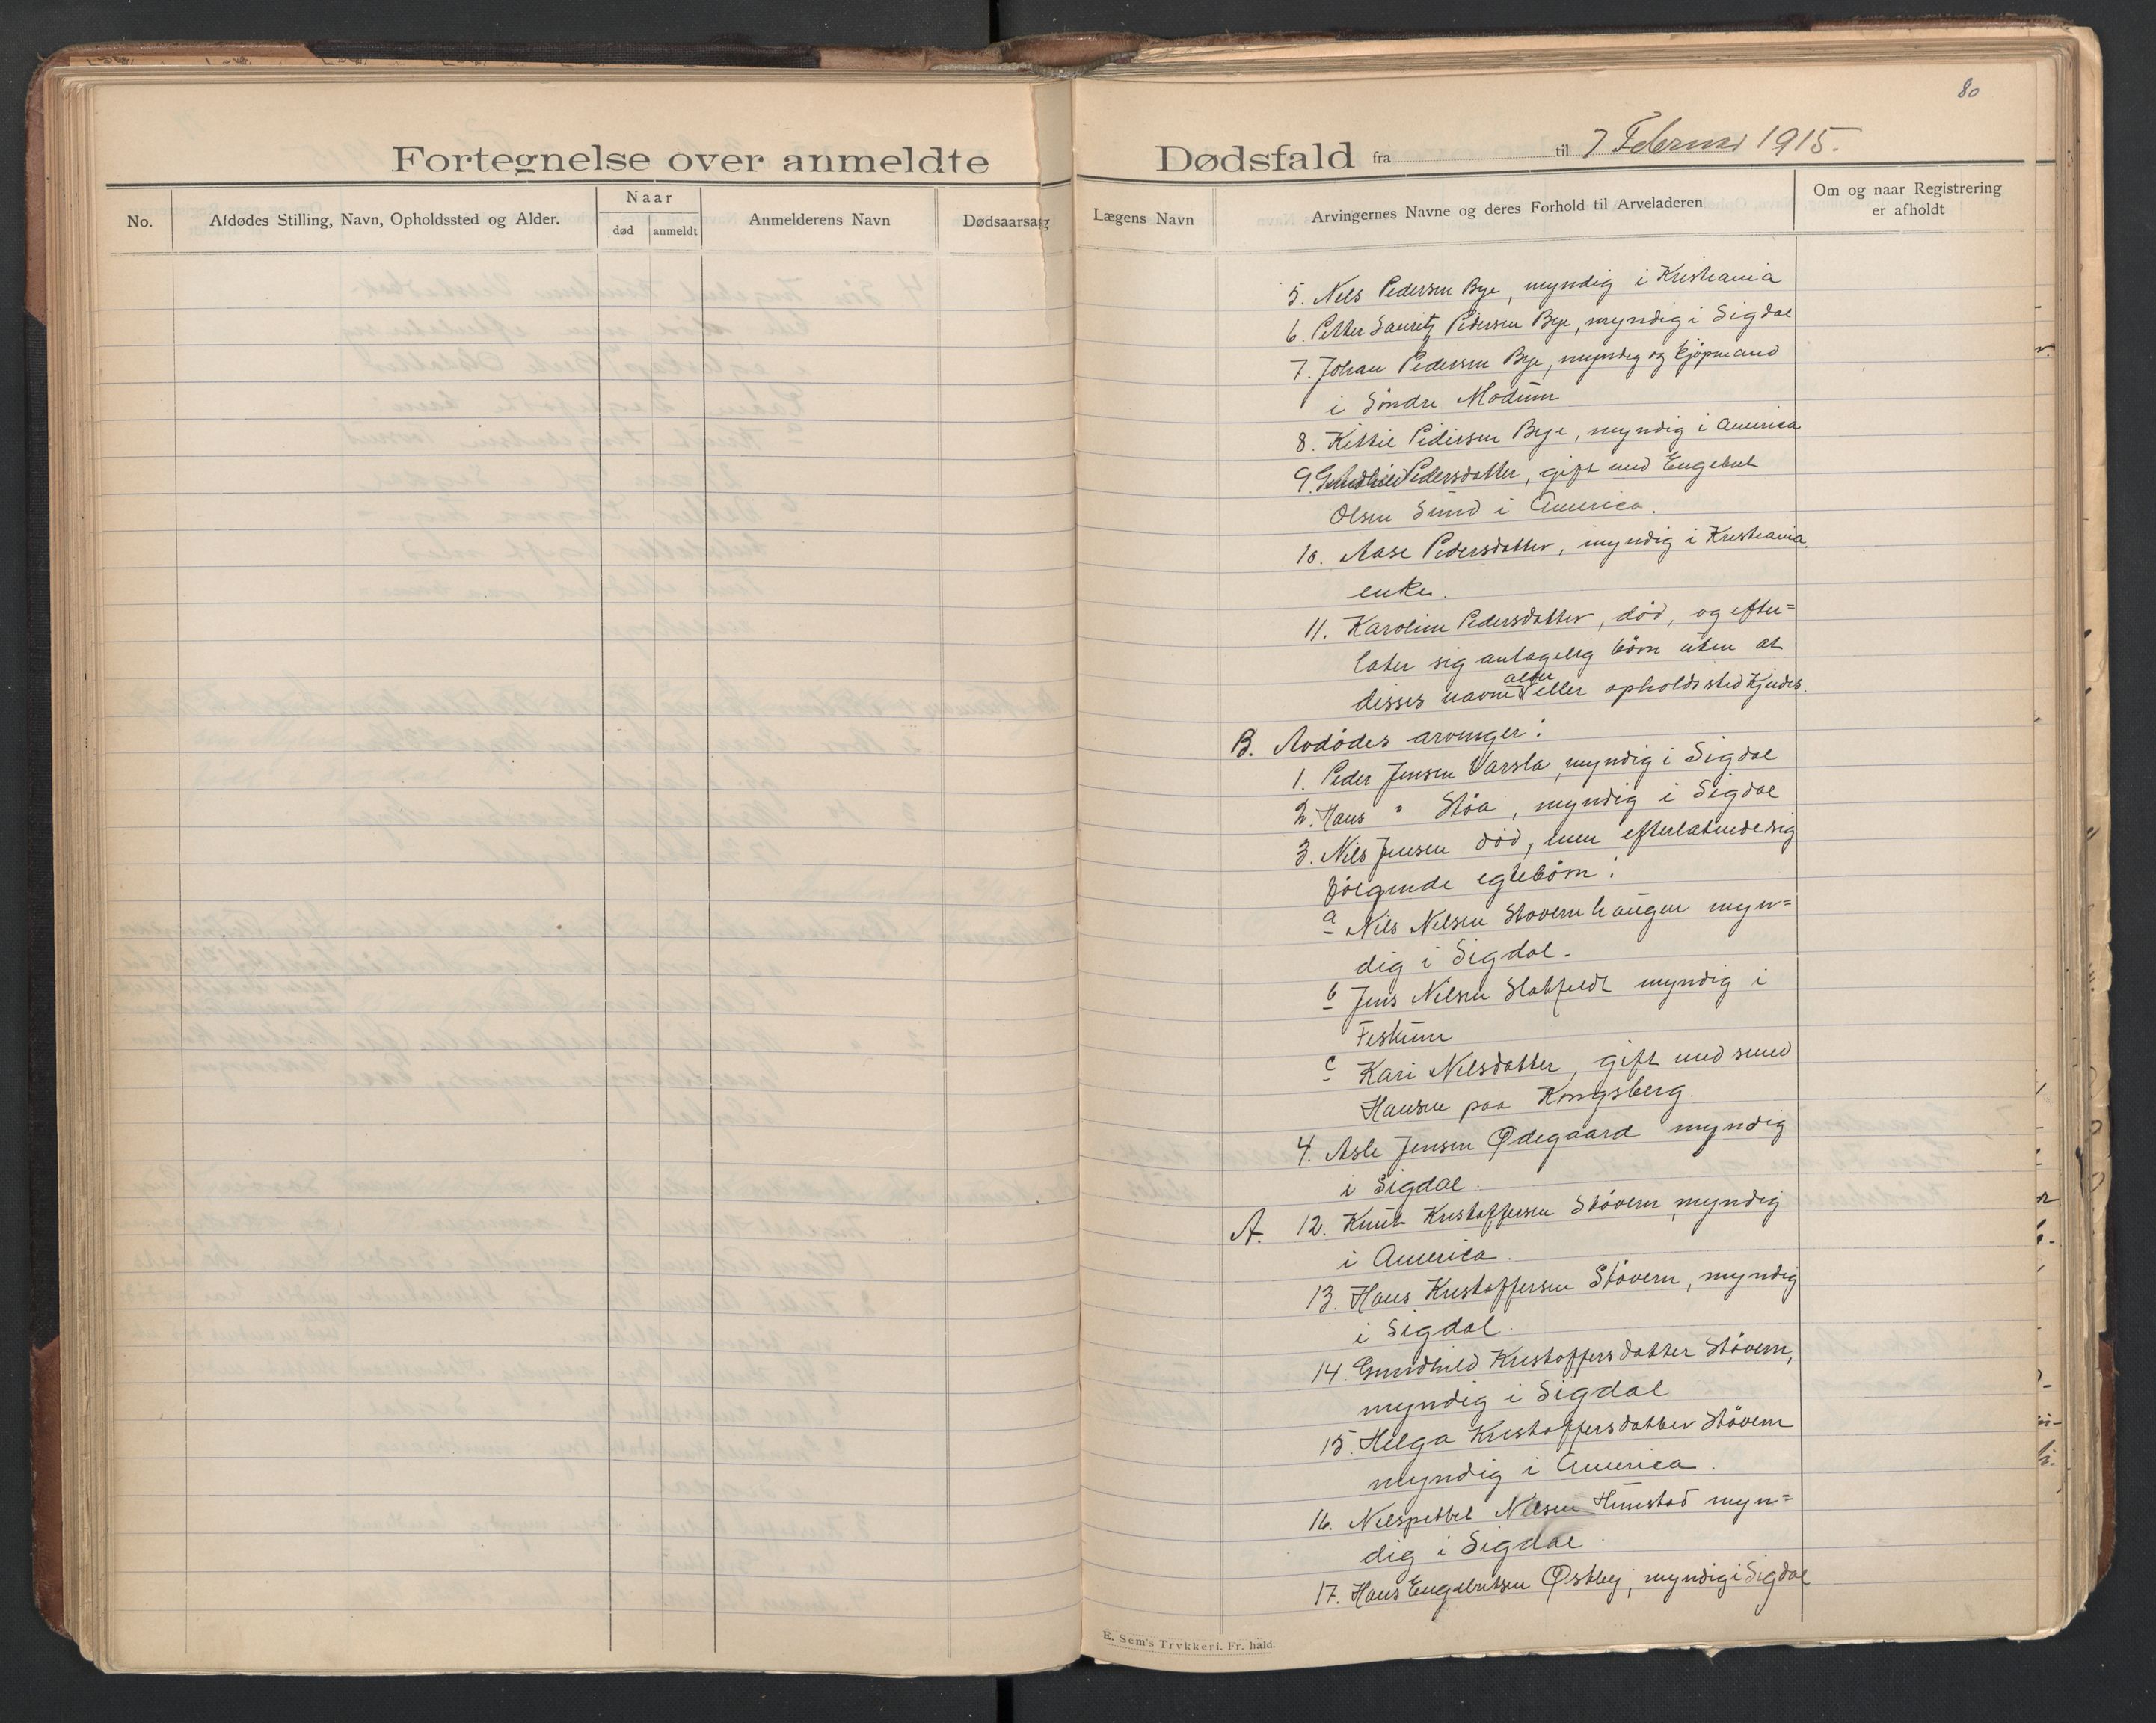 80
Fortegnelse over anmeldte Dødsfald fra til 7 Februar 1915.
No.
Afdødes Stilling, Navn, Opholdssted og Alder.
Naar
død
anmeldt
Anmelderens Navn
Dødsaarsag
Lægens Navn
Arvingernes Navne og deres Forhold til Arveladeren
Om og naar Registrering
er afholdt
5. Nels Pedersen Bye, myndig i Kristiania
6. Petter Lauritz Pedersen Bye, myndig i Sigdal
7. Johan Pedersen Bye, myndig og kjøpmand
i Søndre Modum
8. Kittil Pedersen Bye, myndig i America
9. Gundhild Pedersdatter, gift med Engebret
Olsen Sund i America.
10. Aase Pedersdatter, myndig i Kristiania.
enke.
11. Karoline Pedersdatter, død, og efter=
later sig antagelig børn uten at
disses navne alder eller opholdssted kjendes.
B. Avdødes arvinger:
1. Peder Jensen Varsla, myndig i Sigdal
2. Hans " Støa, myndig i Sigdal
3. Nils Jensen død, men efterlatende sig
følgende egtebørn:
a Nils Nilsen Stovernhaugen myn=
dig i Sigdal.
b Jens Nilsen Slatfeldt myndig i
Fiskum
c Kari Nilsdatter, gift med smed
Hansen paa Kongsberg.
4. Asle Jensen Ødegaard myndig
i Sigdal.
A. 12. Knut Kristoffersen Støvern, myndig
i America.
13. Hans Kristoffersen Støvern, myndig
i Sigdal.
14. Gundhild Kristoffersdatter Støvern,
myndig i Sigdal
15. Helga Kristoffersdatter Støvern
myndig i America.
16. Nilspettel Nilsen Hunstad myn=
dig i Sigdal.
17. Hans Engebretsen Østby, myndig i Sigdal
E. Sem's Trykkeri. Fr. hald.